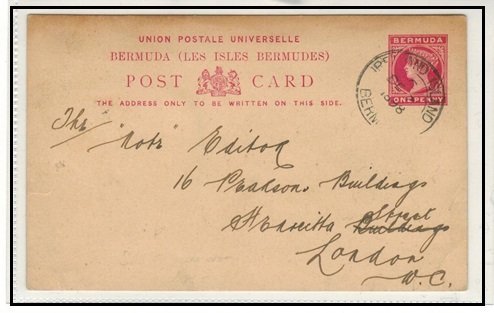 UNION POSTALE UNIVERSELLE
BERMUDA (LES ISLES BERMUDES)
POST CARD
THE ADDRESS ONLY TO BE WRITTEN ON THIS SIDE.
BERMUDA
ONE PENNY
IRELAND ISLAND
BERM
The "Note" Editor
16 Pearsons. Buildings
Henrietta Street
Buildings
London
W.C.